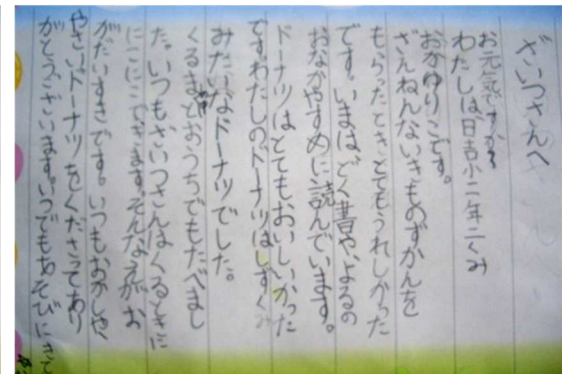 ざいつさんへ
お元気ですか。
わたしは日吉小二年二くみ
おかゆりこです。
ざんねんないきものずかんを
もらったときとてもうれしかった
です。いまはどく書や、よるの
おなかやすめに読んでいます。
ドーナツはとてもおいしかった
です。わたしのドーナツはしずくみ
みたいなドーナツでした。
くるまとおうちでもたべまし
た。いつもざいつさんはくるときに
にこにこできます。そんなえがお
がだいすきです。いつもおかしや
やさいドーナツをくださってあり
がとうございます。いつでもあそびにきて